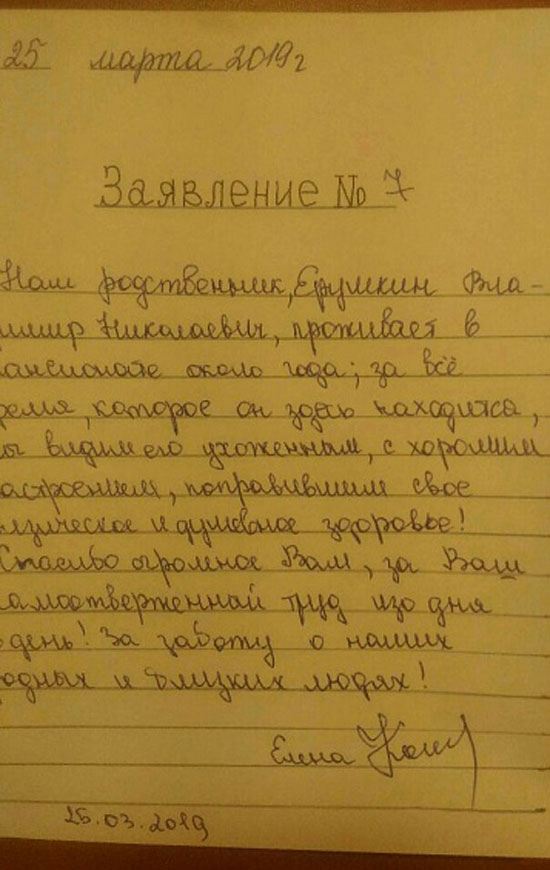 25 марта 2019г
Заявление № 7
Наш родственник, Ерушкин Вла-
имир Николаевич, проживает в
ансионате около года; за всё
ремя, которое он здесь находится,
ы видим его ухоженным, с хорошим
астроением, поправившим свое
изическое и душевное здоровье!
Спасибо огромное Вам, за Ваш
амоотверженный труд изо дня
день! За заботу о наших
одных и близких людях!
Елена
25.03.2019